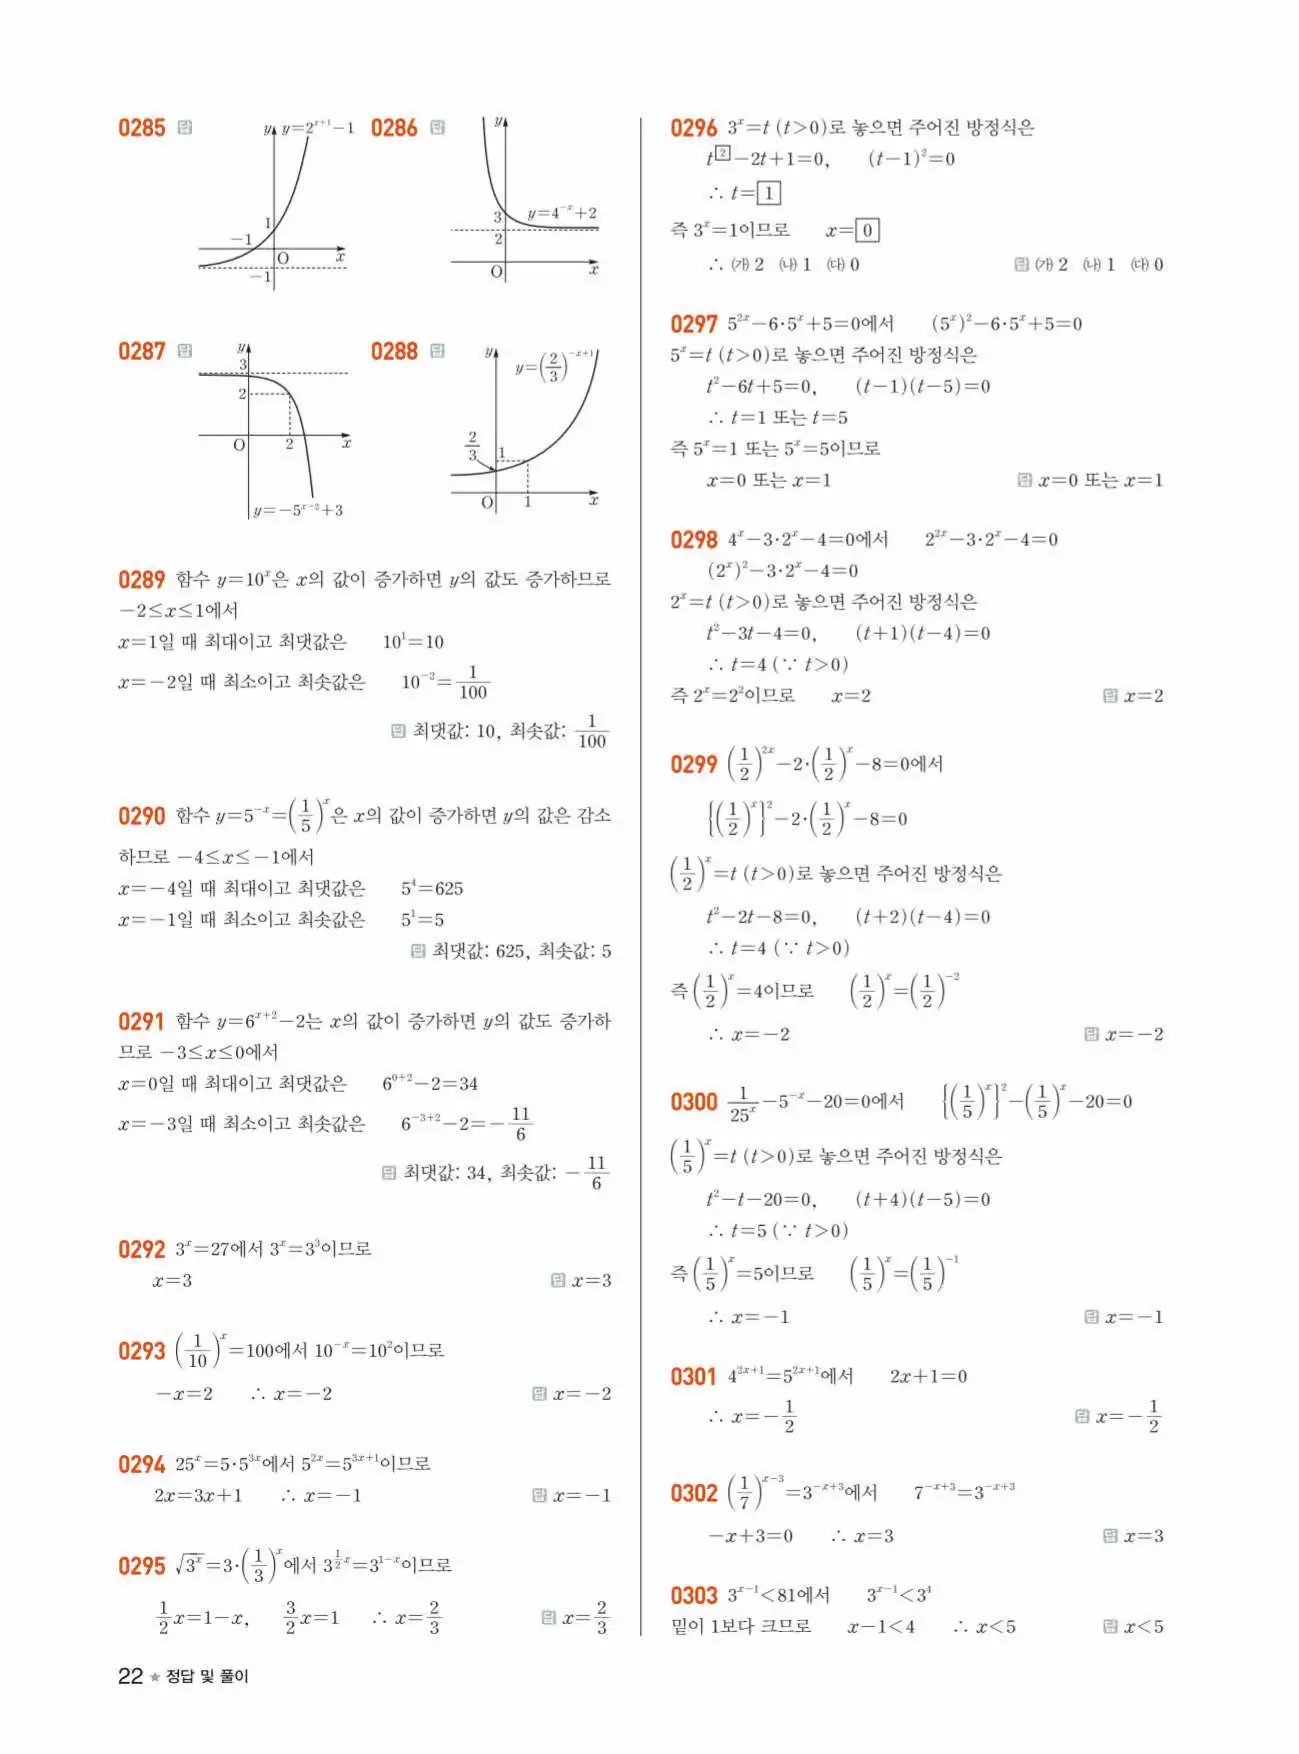 0285 답
y y=2^{x+1}-1
1
-1
O x
-1
0286 답
y
3 y=4^{-x}+2
2
O x
0287 답
y
3
2
O 2 x
y=-5^{x-2}+3
0288 답
y
y=(2/3)^{-x+1}
2/3 1
O 1 x
0289 함수 y=10^x은 x의 값이 증가하면 y의 값도 증가하므로
-2≤x≤1에서
x=1일 때 최대이고 최댓값은 10^1=10
x=-2일 때 최소이고 최솟값은 10^{-2}=1/100
답 최댓값: 10, 최솟값: 1/100
0290 함수 y=5^{-x}=(1/5)^x은 x의 값이 증가하면 y의 값은 감소
하므로 -4≤x≤-1에서
x=-4일 때 최대이고 최댓값은 5^4=625
x=-1일 때 최소이고 최솟값은 5^1=5
답 최댓값: 625, 최솟값: 5
0291 함수 y=6^{x+2}-2는 x의 값이 증가하면 y의 값도 증가하
므로 -3≤x≤0에서
x=0일 때 최대이고 최댓값은 6^{0+2}-2=34
x=-3일 때 최소이고 최솟값은 6^{-3+2}-2=-11/6
답 최댓값: 34, 최솟값: -11/6
0292 3^x=27에서 3^x=3^3이므로
x=3 답 x=3
0293 (1/10)^x=100에서 10^{-x}=10^2이므로
-x=2 ∴ x=-2 답 x=-2
0294 25^x=5·5^{3x}에서 5^{2x}=5^{3x+1}이므로
2x=3x+1 ∴ x=-1 답 x=-1
0295 √3^x=3·(1/3)^x에서 3^{1/2 x}=3^{1-x}이므로
1/2 x=1-x, 3/2 x=1 ∴ x=2/3 답 x=2/3
0296 3^x=t (t>0)로 놓으면 주어진 방정식은
t^{2}-2t+1=0, (t-1)^2=0
∴ t=1
즉 3^x=1이므로 x=0
∴ ㈎ 2 ㈏ 1 ㈐ 0 답 ㈎ 2 ㈏ 1 ㈐ 0
0297 5^{2x}-6·5^x+5=0에서 (5^x)^2-6·5^x+5=0
5^x=t (t>0)로 놓으면 주어진 방정식은
t^2-6t+5=0, (t-1)(t-5)=0
∴ t=1 또는 t=5
즉 5^x=1 또는 5^x=5이므로
x=0 또는 x=1 답 x=0 또는 x=1
0298 4^x-3·2^x-4=0에서 2^{2x}-3·2^x-4=0
(2^x)^2-3·2^x-4=0
2^x=t (t>0)로 놓으면 주어진 방정식은
t^2-3t-4=0, (t+1)(t-4)=0
∴ t=4 (∵ t>0)
즉 2^x=2^2이므로 x=2 답 x=2
0299 (1/2)^{2x}-2·(1/2)^x-8=0에서
{(1/2)^x}^2-2·(1/2)^x-8=0
(1/2)^x=t (t>0)로 놓으면 주어진 방정식은
t^2-2t-8=0, (t+2)(t-4)=0
∴ t=4 (∵ t>0)
즉 (1/2)^x=4이므로 (1/2)^x=(1/2)^{-2}
∴ x=-2 답 x=-2
0300 1/25^x-5^{-x}-20=0에서 {(1/5)^x}^2-(1/5)^x-20=0
(1/5)^x=t (t>0)로 놓으면 주어진 방정식은
t^2-t-20=0, (t+4)(t-5)=0
∴ t=5 (∵ t>0)
즉 (1/5)^x=5이므로 (1/5)^x=(1/5)^{-1}
∴ x=-1 답 x=-1
0301 4^{2x+1}=5^{2x+1}에서 2x+1=0
∴ x=-1/2 답 x=-1/2
0302 (1/7)^{x-3}=3^{-x+3}에서 7^{-x+3}=3^{-x+3}
-x+3=0 ∴ x=3 답 x=3
0303 3^{x-1}<81에서 3^{x-1}<3^4
밑이 1보다 크므로 x-1<4 ∴ x<5 답 x<5
22 ★ 정답 및 풀이